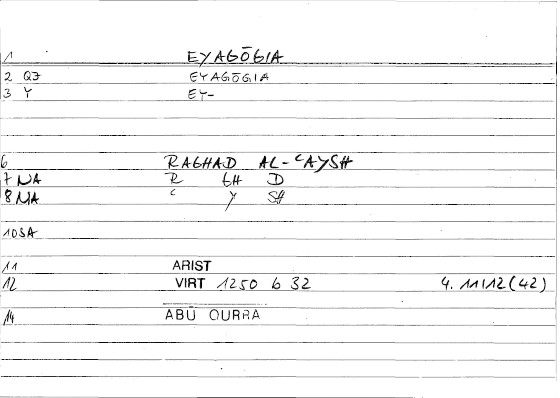 1 EYAGŌGIA
2 QJ EYAGŌGIA
3 Y EY-
6 RAGHAD AL-ʿAYSH
7 NA R GH D
8 NA ʿ Y SH
10 SA
11 ARIST
12 VIRT 1250 b 32 4. 11/12 (42)
14 ABŪ QURRA